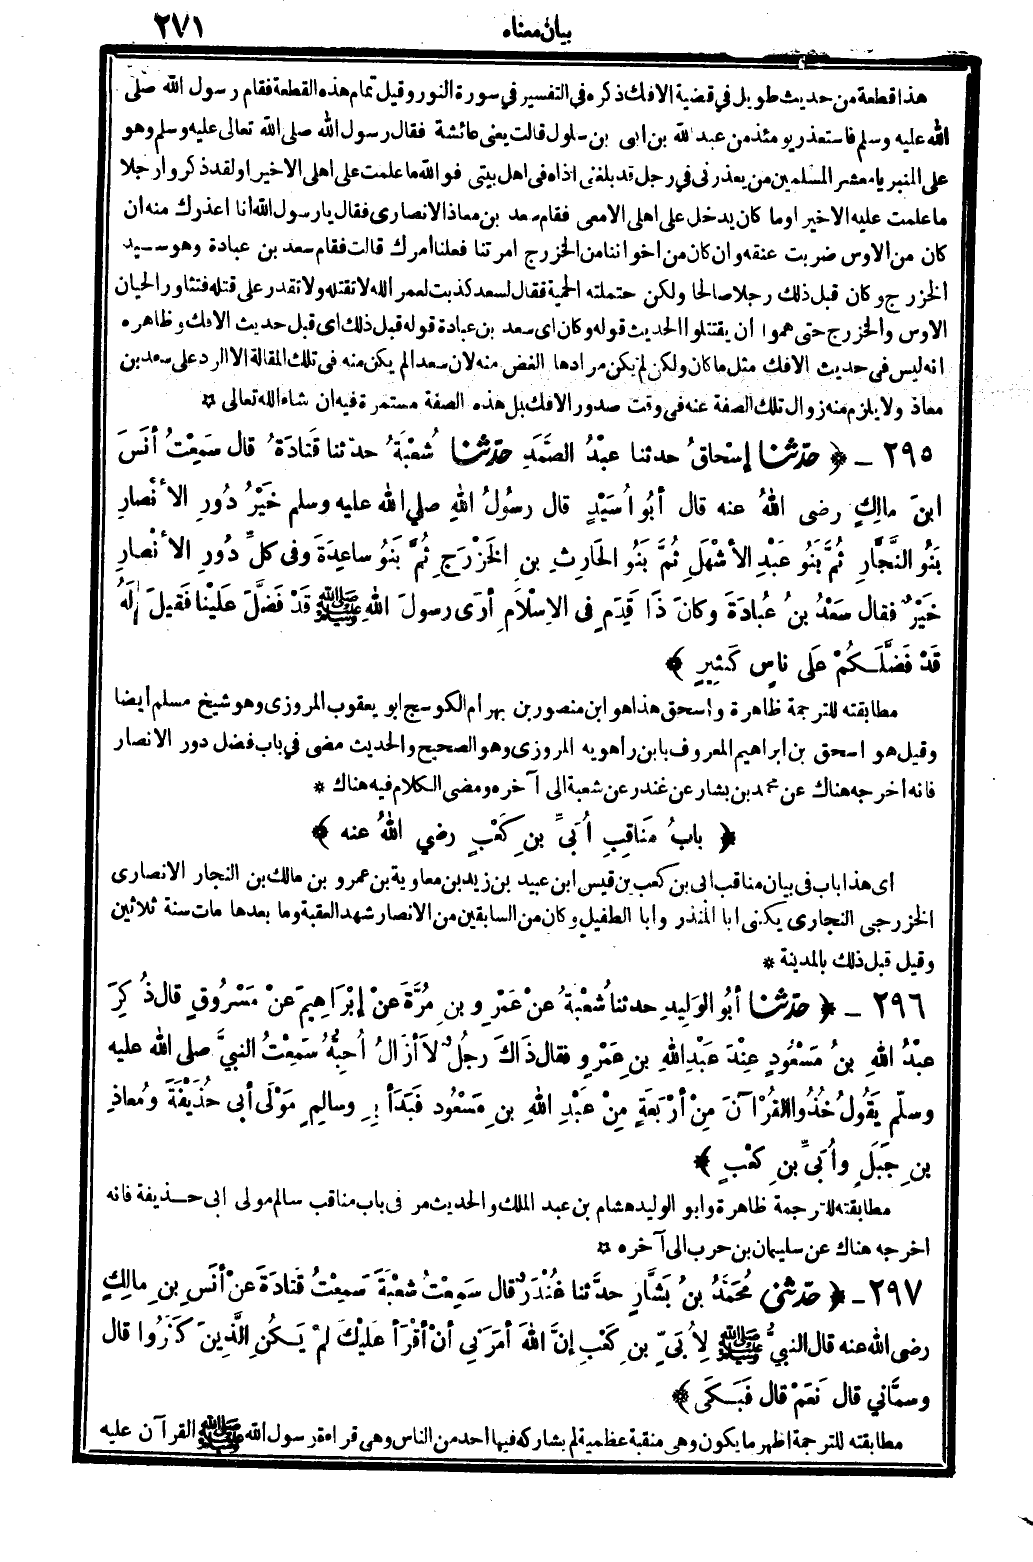 بيان معناه ٢٧١
هذا قطعة من حديث طويل في قضية الافك ذكره في التفسير في سورة النور وقيل تمام هذه القطعة فقام رسول الله صلى
الله عليه وسلم فاستعذر يومئذ من عبد الله بن ابى بن سلول قالت يعنى عائشة فقال رسول الله صلى الله تعالى عليه وسلم وهو
على المنبر يا معشر المسلمين من يعذرنى في رجل قد بلغنى اذاه فى اهل بيتى فو الله ما علمت على اهلى الا خيرا ولقد ذكروا رجلا
ما علمت عليه الا خيرا وما كان يدخل على اهلى الا معى فقام سعد بن معاذ الانصارى فقال يا رسول الله أنا اعذرك منه ان
كان من الاوس ضربت عنقه وان كان من اخواننا من الخزرج امرتنا فعلنا أمرك قالت فقام سعد بن عبادة وهو سيد
الخزرج وكان قبل ذلك رجلا صالحا ولكن حتملته الحمية فقال لسعد كذبت لعمر الله لا تقتله ولا تقدر على قتله فتثاور الحيان
الاوس والخزرج حتى هموا أن يقتتلوا الحديث قوله وكان اى سعد بن عبادة قوله قبل ذلك اى قبل حديث الافك وظاهره
انه ليس فى حديث الافك مثل ما كان ولكن لم يكن مرادها الغض منه لان سعدا لم يكن منه فى تلك المقالة الا الرد على سعد بن
معاذ ولا يلزم منه زوال تلك الصفة عنه فى وقت صدور الافك بل هذه الصفة مستمرة فيه ان شاء الله تعالى ☆
٢٩٥ ـ ﴿ حَدَّثَنَا إسْحَاقُ حدثنا عبْدُ الصَّمَدِ حَدَّثَنَا شُعْبَةُ حدثنا قَتَادَةُ قال سَمِعْتُ أنَسَ
ابنَ مالِكٍ رضى اللهُ عنه قال أبُو اُسَيْدٍ قال رسُولُ اللهِ صلي الله عليه وسلم خَيْرُ دُورِ الأنْصارِ
بَنُو النَّجَّارِ ثُمَّ بَنُو عَبْدِ الأشْهَلِ ثُمَّ بَنُو الحَارِثِ بنِ الخَزْرَجِ ثُمَّ بَنُو ساعِدَةَ وفى كلِّ دُورِ الأنْصارِ
خَيْرٌ فقال سَعْدُ بنُ عُبادَةَ وكانَ ذَا قِدَمٍ فى الاِسْلاَمِ أرَى رسولَ اللهِ ﷺ قَدْ فَضَّلَ عَلَيْنا فَقِيلَ لَهُ
قَدْ فَضَّلَكُمْ عَلَى ناسٍ كَثِيرٍ ﴾
مطابقته للترجمة ظاهرة واسحق هذا هو ابن منصور بن بهرام الكوسج ابو يعقوب المروزى وهو شيخ مسلم أيضا
وقيل هو اسحق بن ابراهيم المعروف بابن راهويه المروزى وهو الصحيح والحديث مضى في باب فضل دور الانصار
فانه أخرجه هناك عن محمد بن بشار عن غندر عن شعبة الى آخره ومضى الكلام فيه هناك *
﴿ بابُ مَنَاقِبِ اُبَىِّ بنِ كَعْبٍ رضي اللهُ عنه ﴾
اى هذا باب فى بيان مناقب ابى بن كعب بن قيس ابن عبيد بن زيد بن معاوية بن عمرو بن مالك بن النجار الانصارى
الخزرجى النجارى يكنى ابا المنذر وابا الطفيل وكان من السابقين من الانصار شهد العقبة وما بعدها مات سنة ثلاثين
وقيل قبل ذلك بالمدينة *
٢٩٦ ـ ﴿ حَدَّثَنَا أبُو الوَلِيدِ حدثنا شُعْبَةُ عنْ عَمْرِو بنِ مُرَّةَ عَنْ إبْرَاهِيمَ عَنْ مَسْرُوقٍ قال ذُكِرَ
عبْدُ اللهِ بنُ مَسْعُودٍ عِنْدَ عَبْدِ اللهِ بنِ عَمْرٍو فقال ذَاكَ رجُلٌ لاَ أزَالُ اُحِبُّهُ سَمِعْتُ النبيَّ صلى الله عليه
وسلّم يَقُولُ خُذُوا القُرْآنَ مِنْ أرْبَعَةٍ مِنْ عَبْدِ اللهِ بنِ مَسْعُودٍ فَبَدَأ بِهِ وسالِمٍ مَوْلَى أبى حُذَيْفَةَ ومُعاذِ
بنِ جَبَلٍ واُبَىِّ بنِ كَعْبٍ ﴾
مطابقته للترجمة ظاهرة وابو الوليد هشام بن عبد الملك والحديث مر فى باب مناقب سالم مولى ابى حذيفة فانه
اخرجه هناك عن سليمان بن حرب الى آخره ☆
٢٩٧ ـ ﴿ حَدَّثَنِي مُحَمَّدُ بنُ بَشَّارٍ حدَّثنا غُنْدَرٌ قال سَمِعْتُ شُعْبَةَ سَمِعْتُ قَتادَةَ عنْ أنَسِ بنِ مالِكٍ
رضى الله عنه قال النبيُّ ﷺ لِاُبَىِّ بنِ كَعْبٍ إنَّ اللهَ أمَرَنِي أنْ أقْرَأ عَلَيْكَ لَمْ يَكُنِ الَّذِينَ كَفَرُوا قال
وسمَّاني قال نَعَمْ قال فَبَكَى ﴾
مطابقته للترجمة اظهر ما يكون وهى منقبة عظمية لم يشاركه فيها احد من الناس وهى قراءة رسول الله ﷺ القرآن عليه